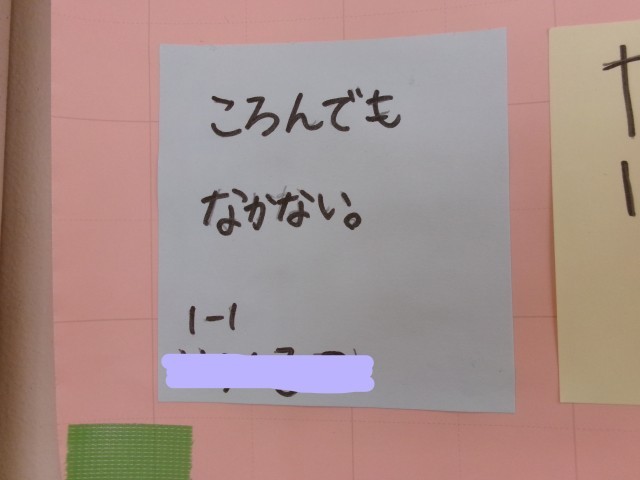 ころんでも
なかない。
1-1